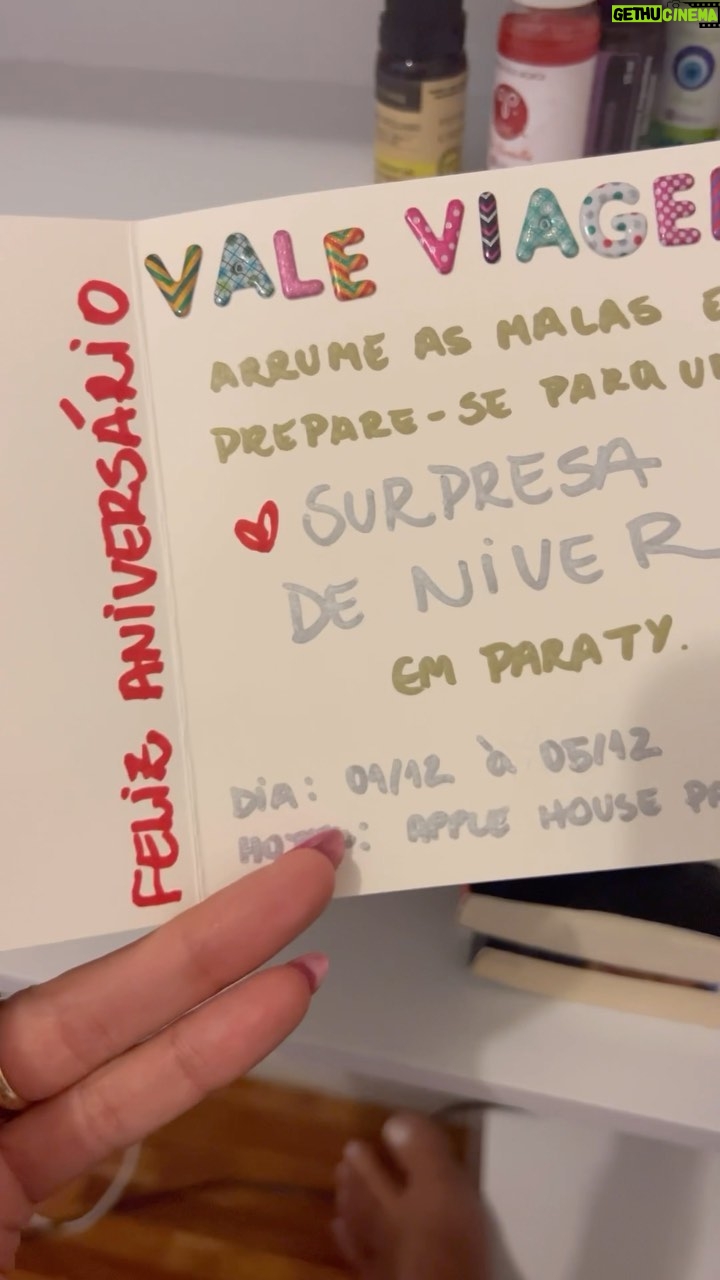 GETHUCINEMA
FELIZ ANIVERSÁRIO
VALE VIAGE
ARRUME AS MALAS E
PREPARE-SE PARA U
SURPRESA
DE NIVER
EM PARATY.
DIA: 01/12 à 05/12
APPLE HOUSE PA